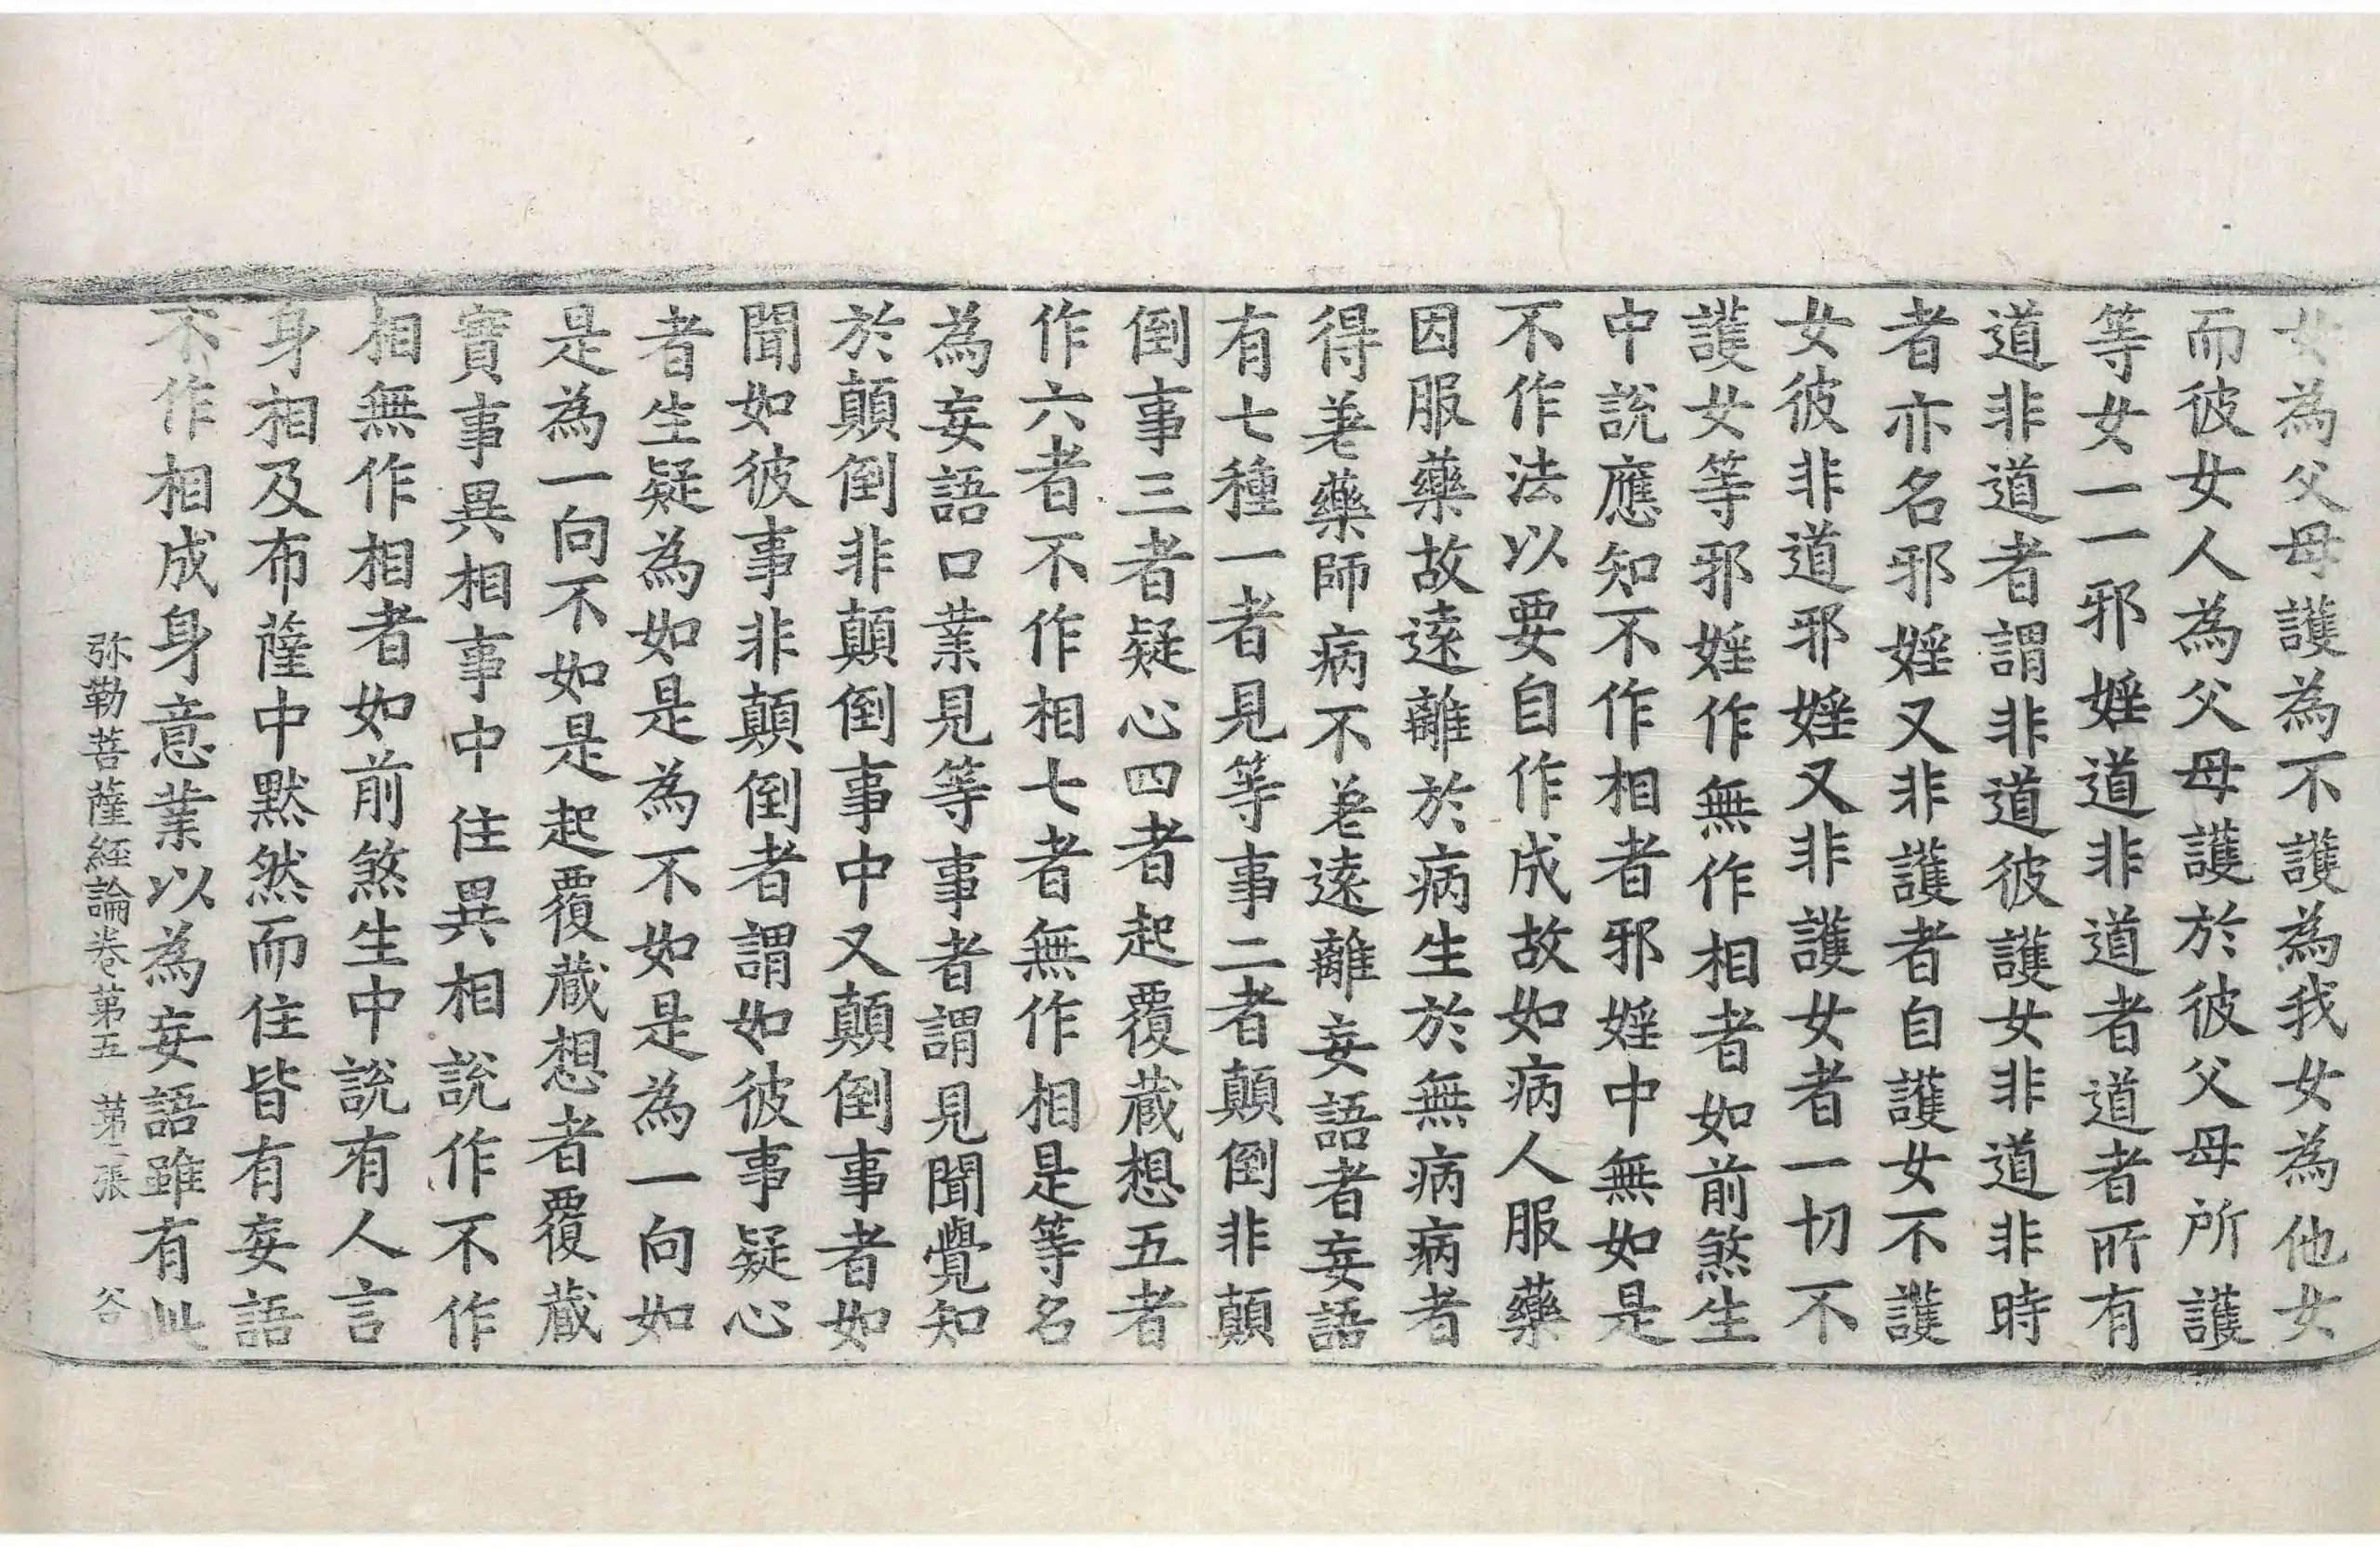 女為父母護為不護為我女為他女
而彼女人為父母護於彼父母所護
等女一一邪婬道非道者道者所有
道非道者謂非道彼護女非道非時
者亦名邪婬又非護者自護女不護
女彼非道邪婬又非護女者一切不
護女等邪婬作無作相者如前煞生
中說應知不作相者邪婬中無如是
不作法以要自作成故如病人服藥
因服藥故遠離於病生於無病病者
得差藥師病不差遠離妄語者妄語
有七種一者見等事二者顛倒非顛
倒事三者疑心四者起覆蔵想五者
作六者不作相七者無作相是等名
為妄語口業見等事者謂見聞覺知
於顛倒非顛倒事中又顛倒事者如
聞如彼事非顛倒者謂如彼事疑心
者生疑為如是為不如是為一向如
是為一向不如是起覆蔵想者覆蔵
實事異相事中住異相說作不作
相無作相者如前煞生中說有人言
身相及布薩中默然而住皆有妄語
不作相成身意業以為妄語雖有此
弥勒菩薩經論卷第五 第二張 谷